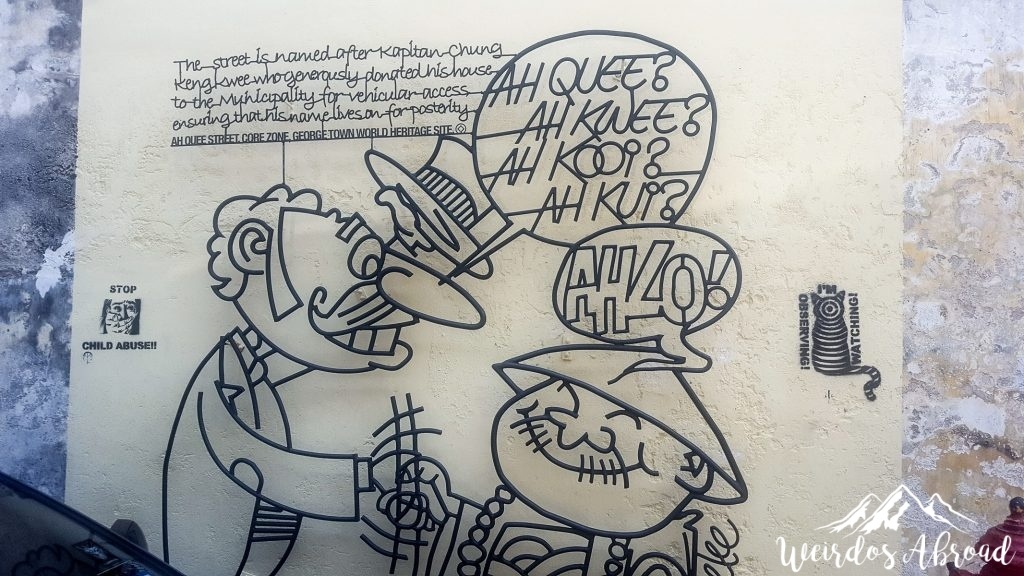 The street is named after Kapitan Chung
Keng Kwee who generously donated his house
to the Municipality for vehicular access
ensuring that his name lives on for posterity
AH QUEE STREET, CORE ZONE, GEORGE TOWN WORLD HERITAGE SITE
AH QUEE?
AH KWEE?
AH KOOI?
AH KUI?
AH LO!
STOP
CHILD ABUSE!!
I'M
OBSERVING!
WATCHING!
Weirdos Abroad